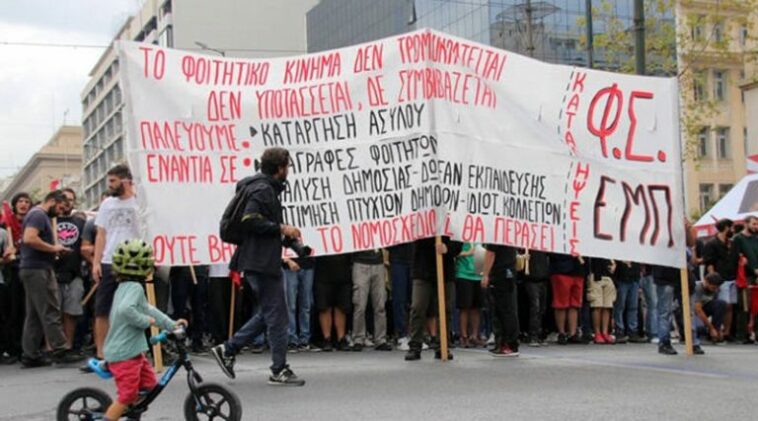 ΤΟ ΦΟΙΤΗΤΙΚΟ ΚΙΝΗΜΑ ΔΕΝ ΤΡΟΜΟΚΡΑΤΕΙΤΑΙ
ΔΕΝ ΥΠΟΤΑΣΣΕΤΑΙ, ΔΕ ΣΥΜΒΙΒΑΖΕΤΑΙ
ΠΑΛΕΥΟΥΜΕ ΚΑΤΑΡΓΗΣΗ ΑΣΥΛΟΥ
ΕΝΑΝΤΙΑ ΣΕ: ΑΓΡΑΦΕΣ ΦΟΙΤΗΤΩΝ
ΑΛΥΣΗ ΔΗΜΟΣΙΑΣ-ΔΩ ΕΑΝ ΕΚΠΑΙΔΕΥΣΗΣ
ΤΙΜΗΣΗ ΠΤΥΧΙΩΝ ΔΗΜΟΣΙΩΝ-ΙΔΙΩΤ. ΚΟΛΛΕΓΙΩΝ
ΟΥΤΕ ΤΟ ΝΟΜΟΣΧΕΔΙΟ ΘΑ ΠΕΡΑΣΕΙ
ΚΑΤΑΛΗΨΕΙΣ
Φ.Σ.
ΕΜΠ